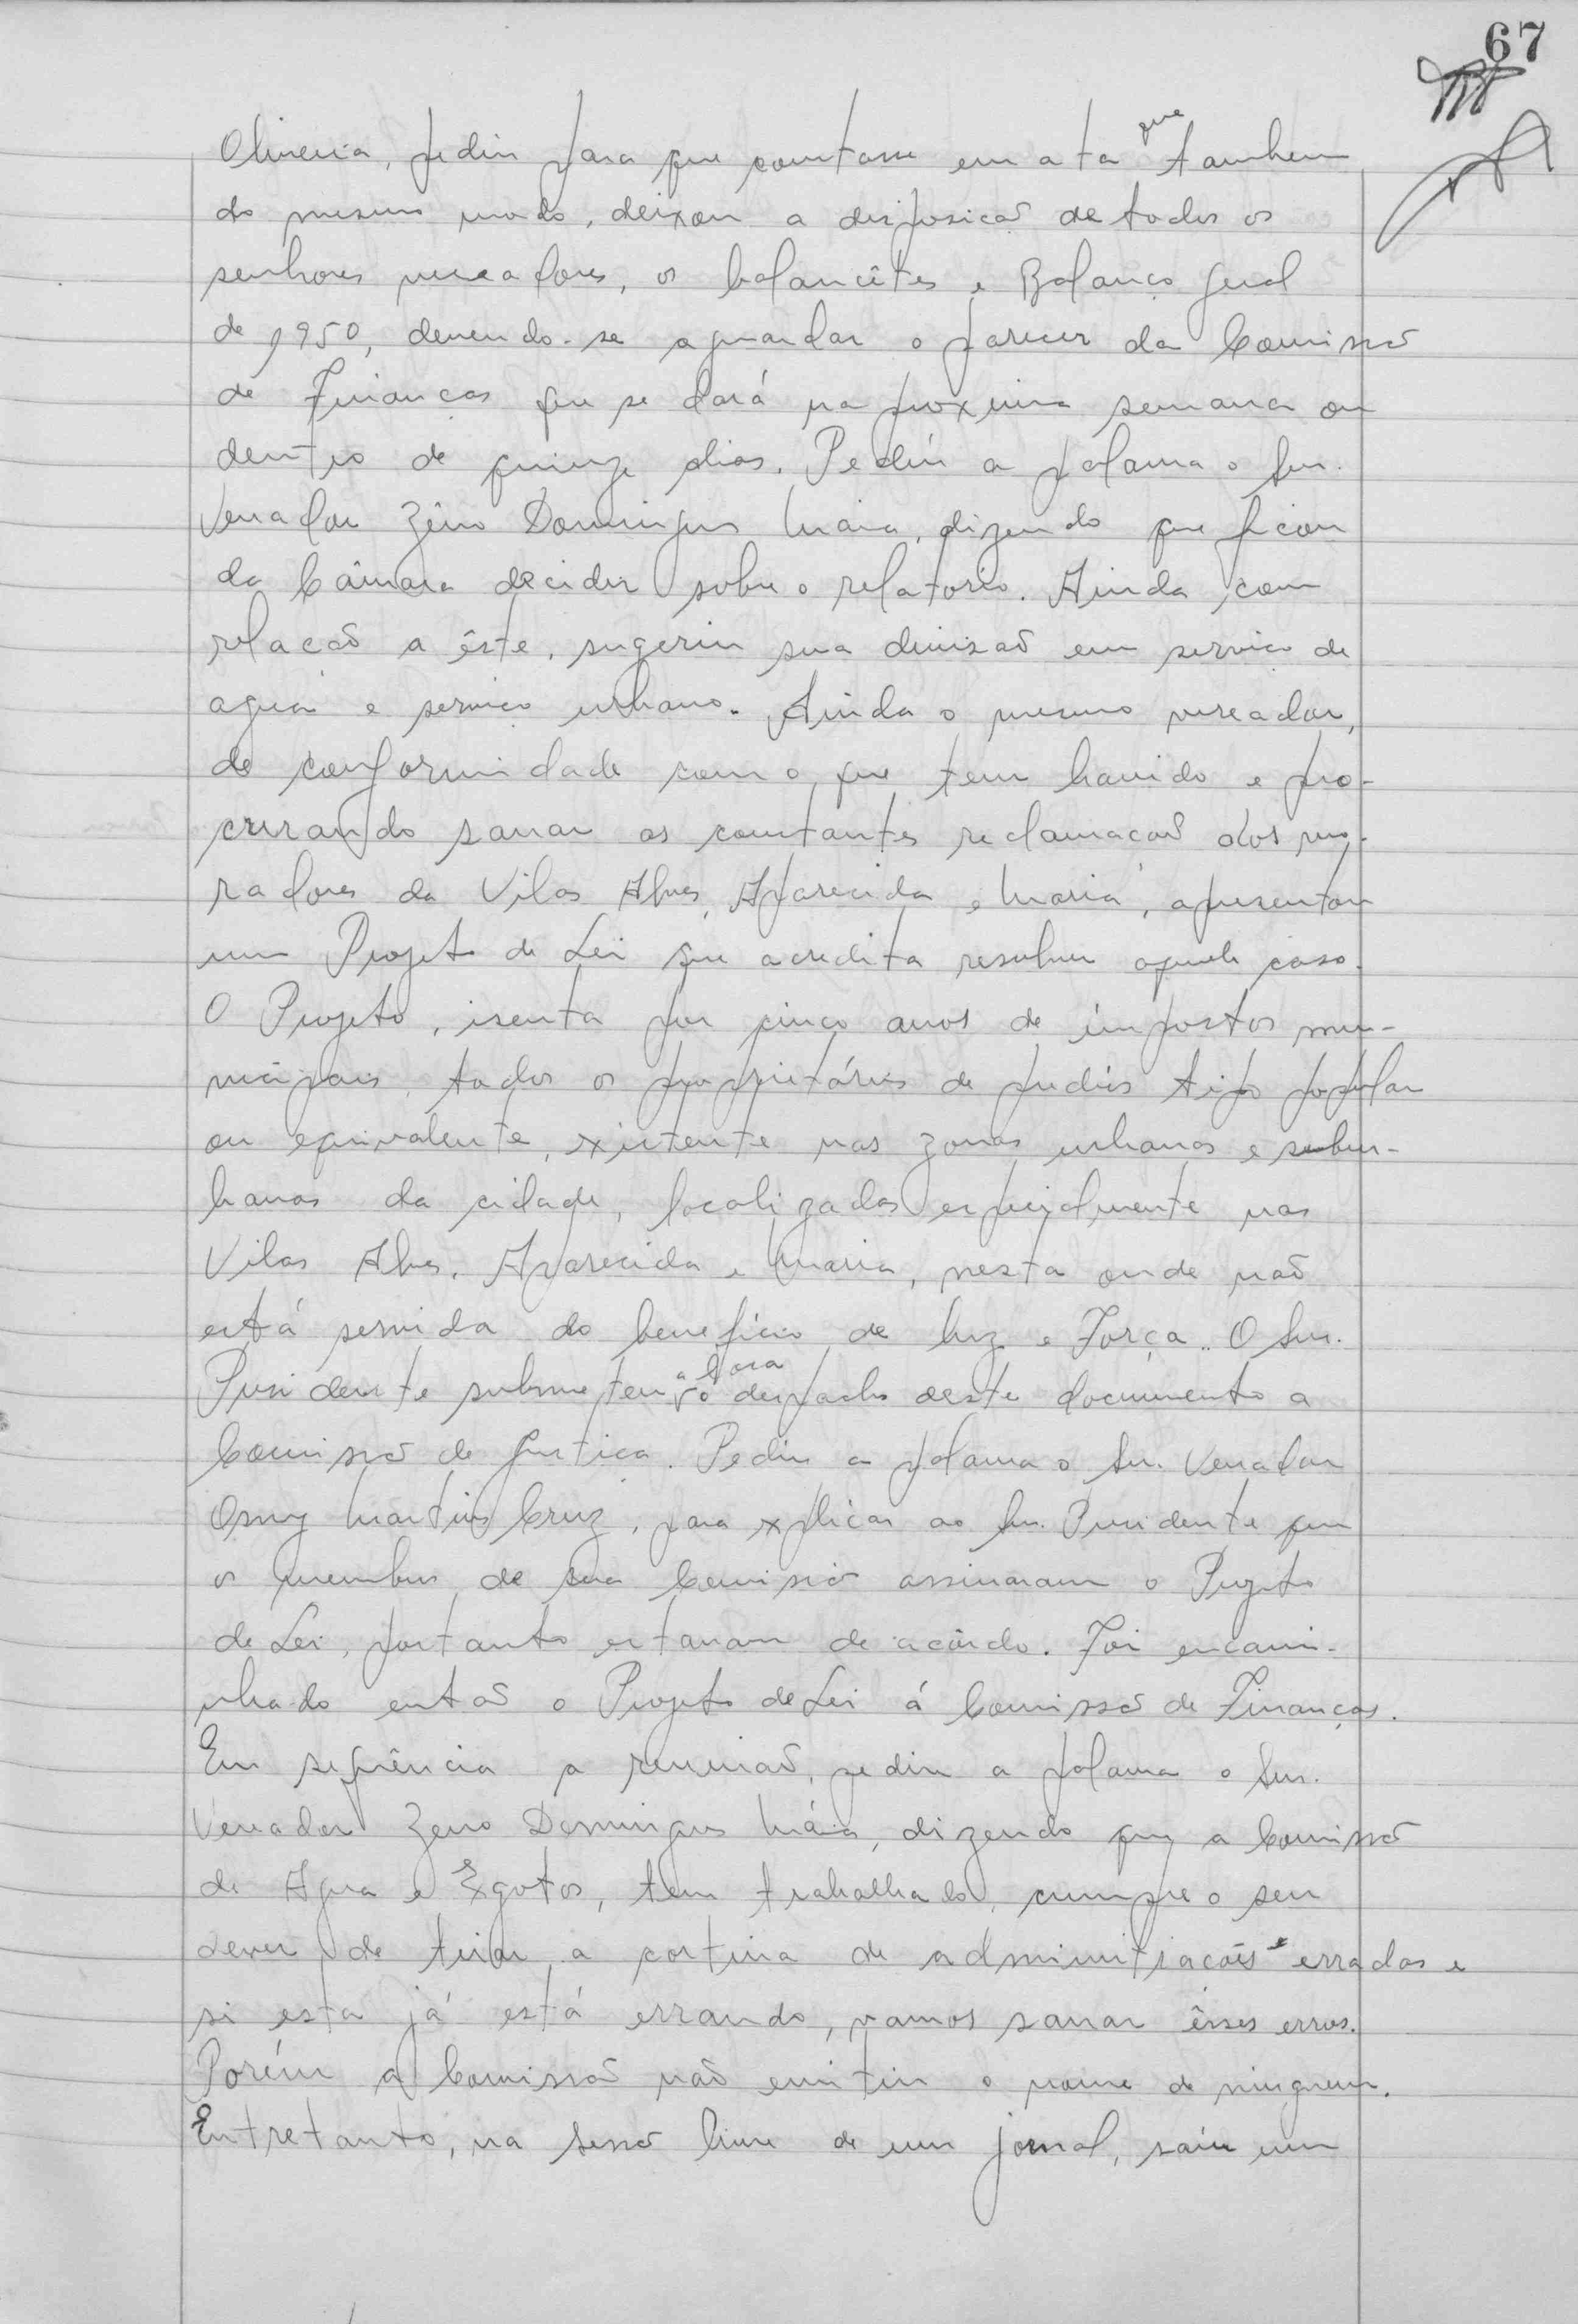 67
Oliveira, pediu para que constasse em ata que tambem
do mesmo modo, deixou a disposicaõ de todos os
senhores vereadores, os balancêtes e Balanço geral
de 1950, devendo-se aguardar o parecer da Comissaõ
de Finanças que se dará na proxima semana ou
dentro de quinze dias. Pediu a palavra o Snr.
Vereador Zêno Domingues Maia, dizendo que ficou
da Câmara decidir sobre o relatorio. Ainda com
relacaõ a êste, sugeriu sua divizaõ em servico de
agua e servico urbano. Ainda o mesmo vereador,
de conformidade com o que tem havido e pro-
crurando sanar as constantes reclamacoẽs dos mo-
radores da Vilas Alves, Aparecida e Maria, apresentou
um Projeto de Lei que acredita resolver aquele caso.
O Projeto, isenta por cinco anos de impostos mu-
nicipais, todos os proprietários de predios tipo popular
ou equivalente, existente nas zonas urbanas e subur-
banas da cidade, localizadas especialmente nas
Vilas Alves, Aparecida e Maria, nesta onde naõ
está servida do beneficio de luz e Força. O Snr.
Presidente submeteu a para o despacho deste documento a
Comissaõ de Justica. Pediu a palavra o Snr. Vereador
Osny Martins Cruz, para explicar ao Snr. Presidente que
os membros de sua Comissaõ assinaram o Projeto
de Lei, portanto estavam de acôrdo. Foi encami-
nhado entaõ o Projeto de Lei á Comissaõ de Finanças.
Em sequência a reuniaõ, pediu a palavra o Snr.
Vereador Zeno Domingues Máia, dizendo que a Comissaõ
de Agua e Esgotos, tem trabalhado, cumpre o seu
dever de tirar a cortina de administracoẽs erradas e
si esta já está errando, vamos sanar êsses erros.
Porém a Comissaõ naõ emitiu o nome de ninguem.
Entretanto, na sessaõ livre de um jornal, saiu um